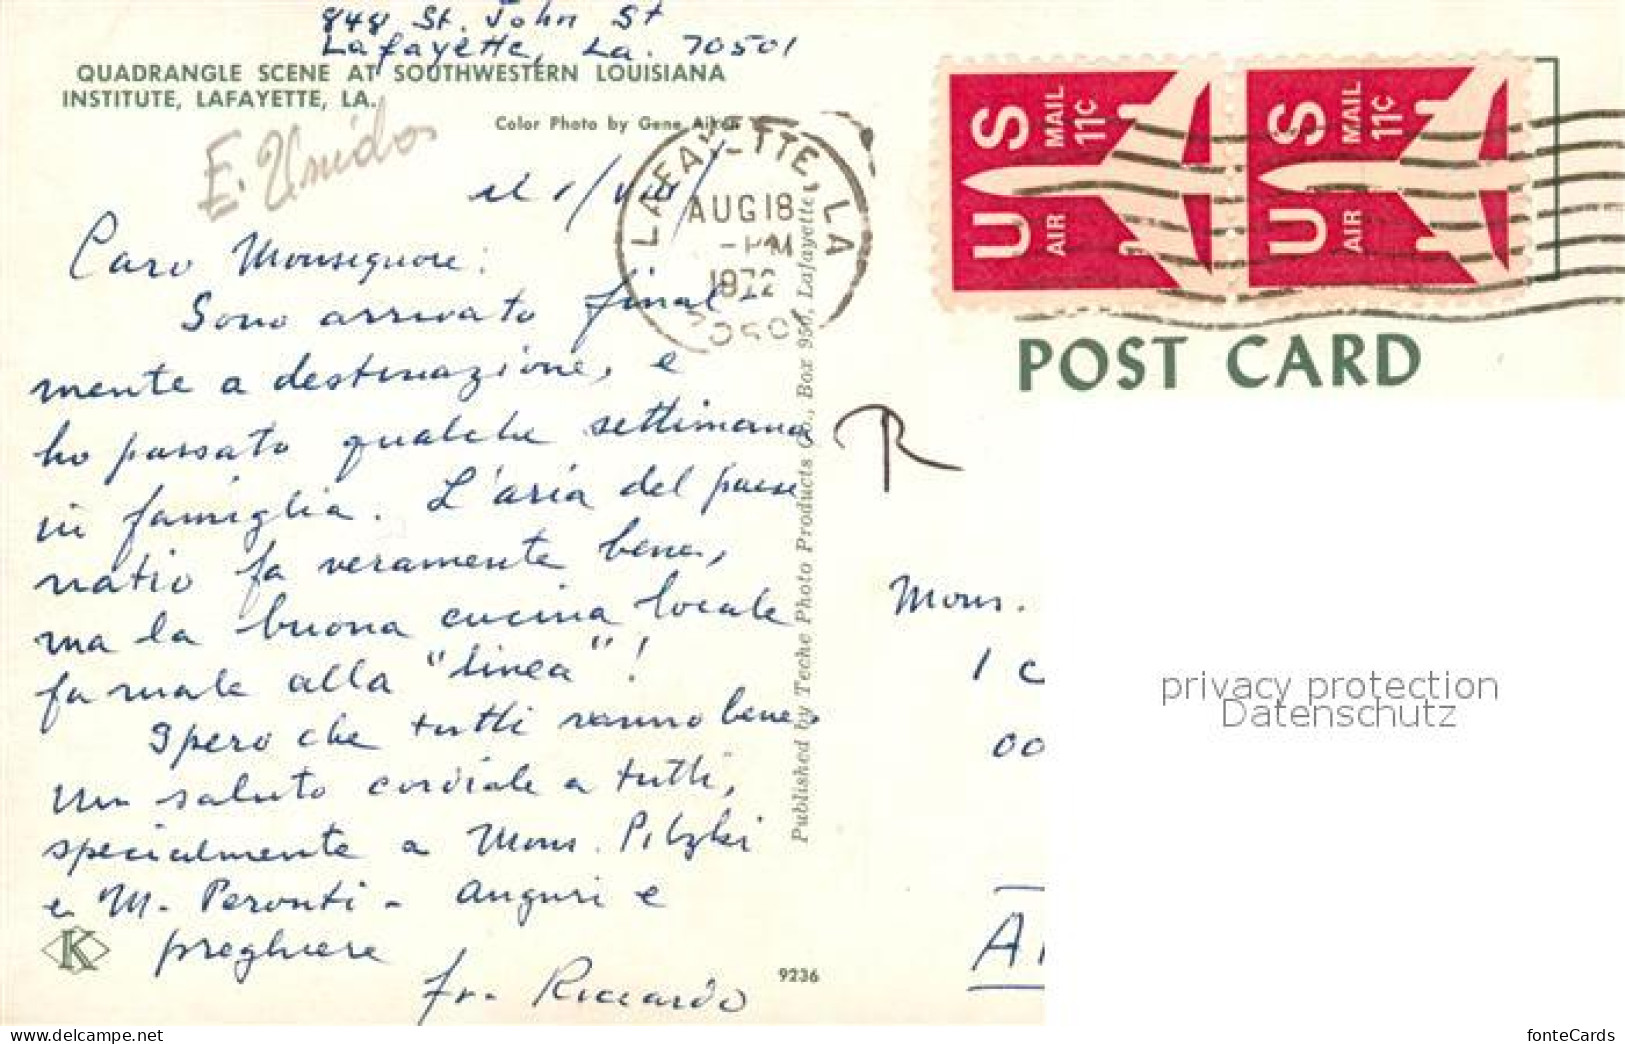 848 St. John St
Lafayette, La. 70501
QUADRANGLE SCENE AT SOUTHWESTERN LOUISIANA
INSTITUTE, LAFAYETTE, LA.
Color Photo by Gene Aiken
E. Unidos
Caro Monsignore:
Sono arrivato final-
mente a destinazione, e
ho passato qualche settimana
in famiglia. L'aria del paese
natio fa veramente bene,
ma la buona cucina locale
fa male alla "linea"!
Spero che tutti vanno bene.
Un saluto cordiale a tutti,
specialmente a Mons.
e M. Peronti - Auguri e
preghiere
fr. Riccardo
K
9236
LAFAYETTE, LA
AUG 18
PM
1972
Published by Teche Photo Products Co., Box 950, Lafayette,
US
AIR MAIL
11¢
US
AIR MAIL
11¢
POST CARD
R
Mons.
1 C
00
A
privacy protection
Datenschutz
www.delcampe.net
fonteCards